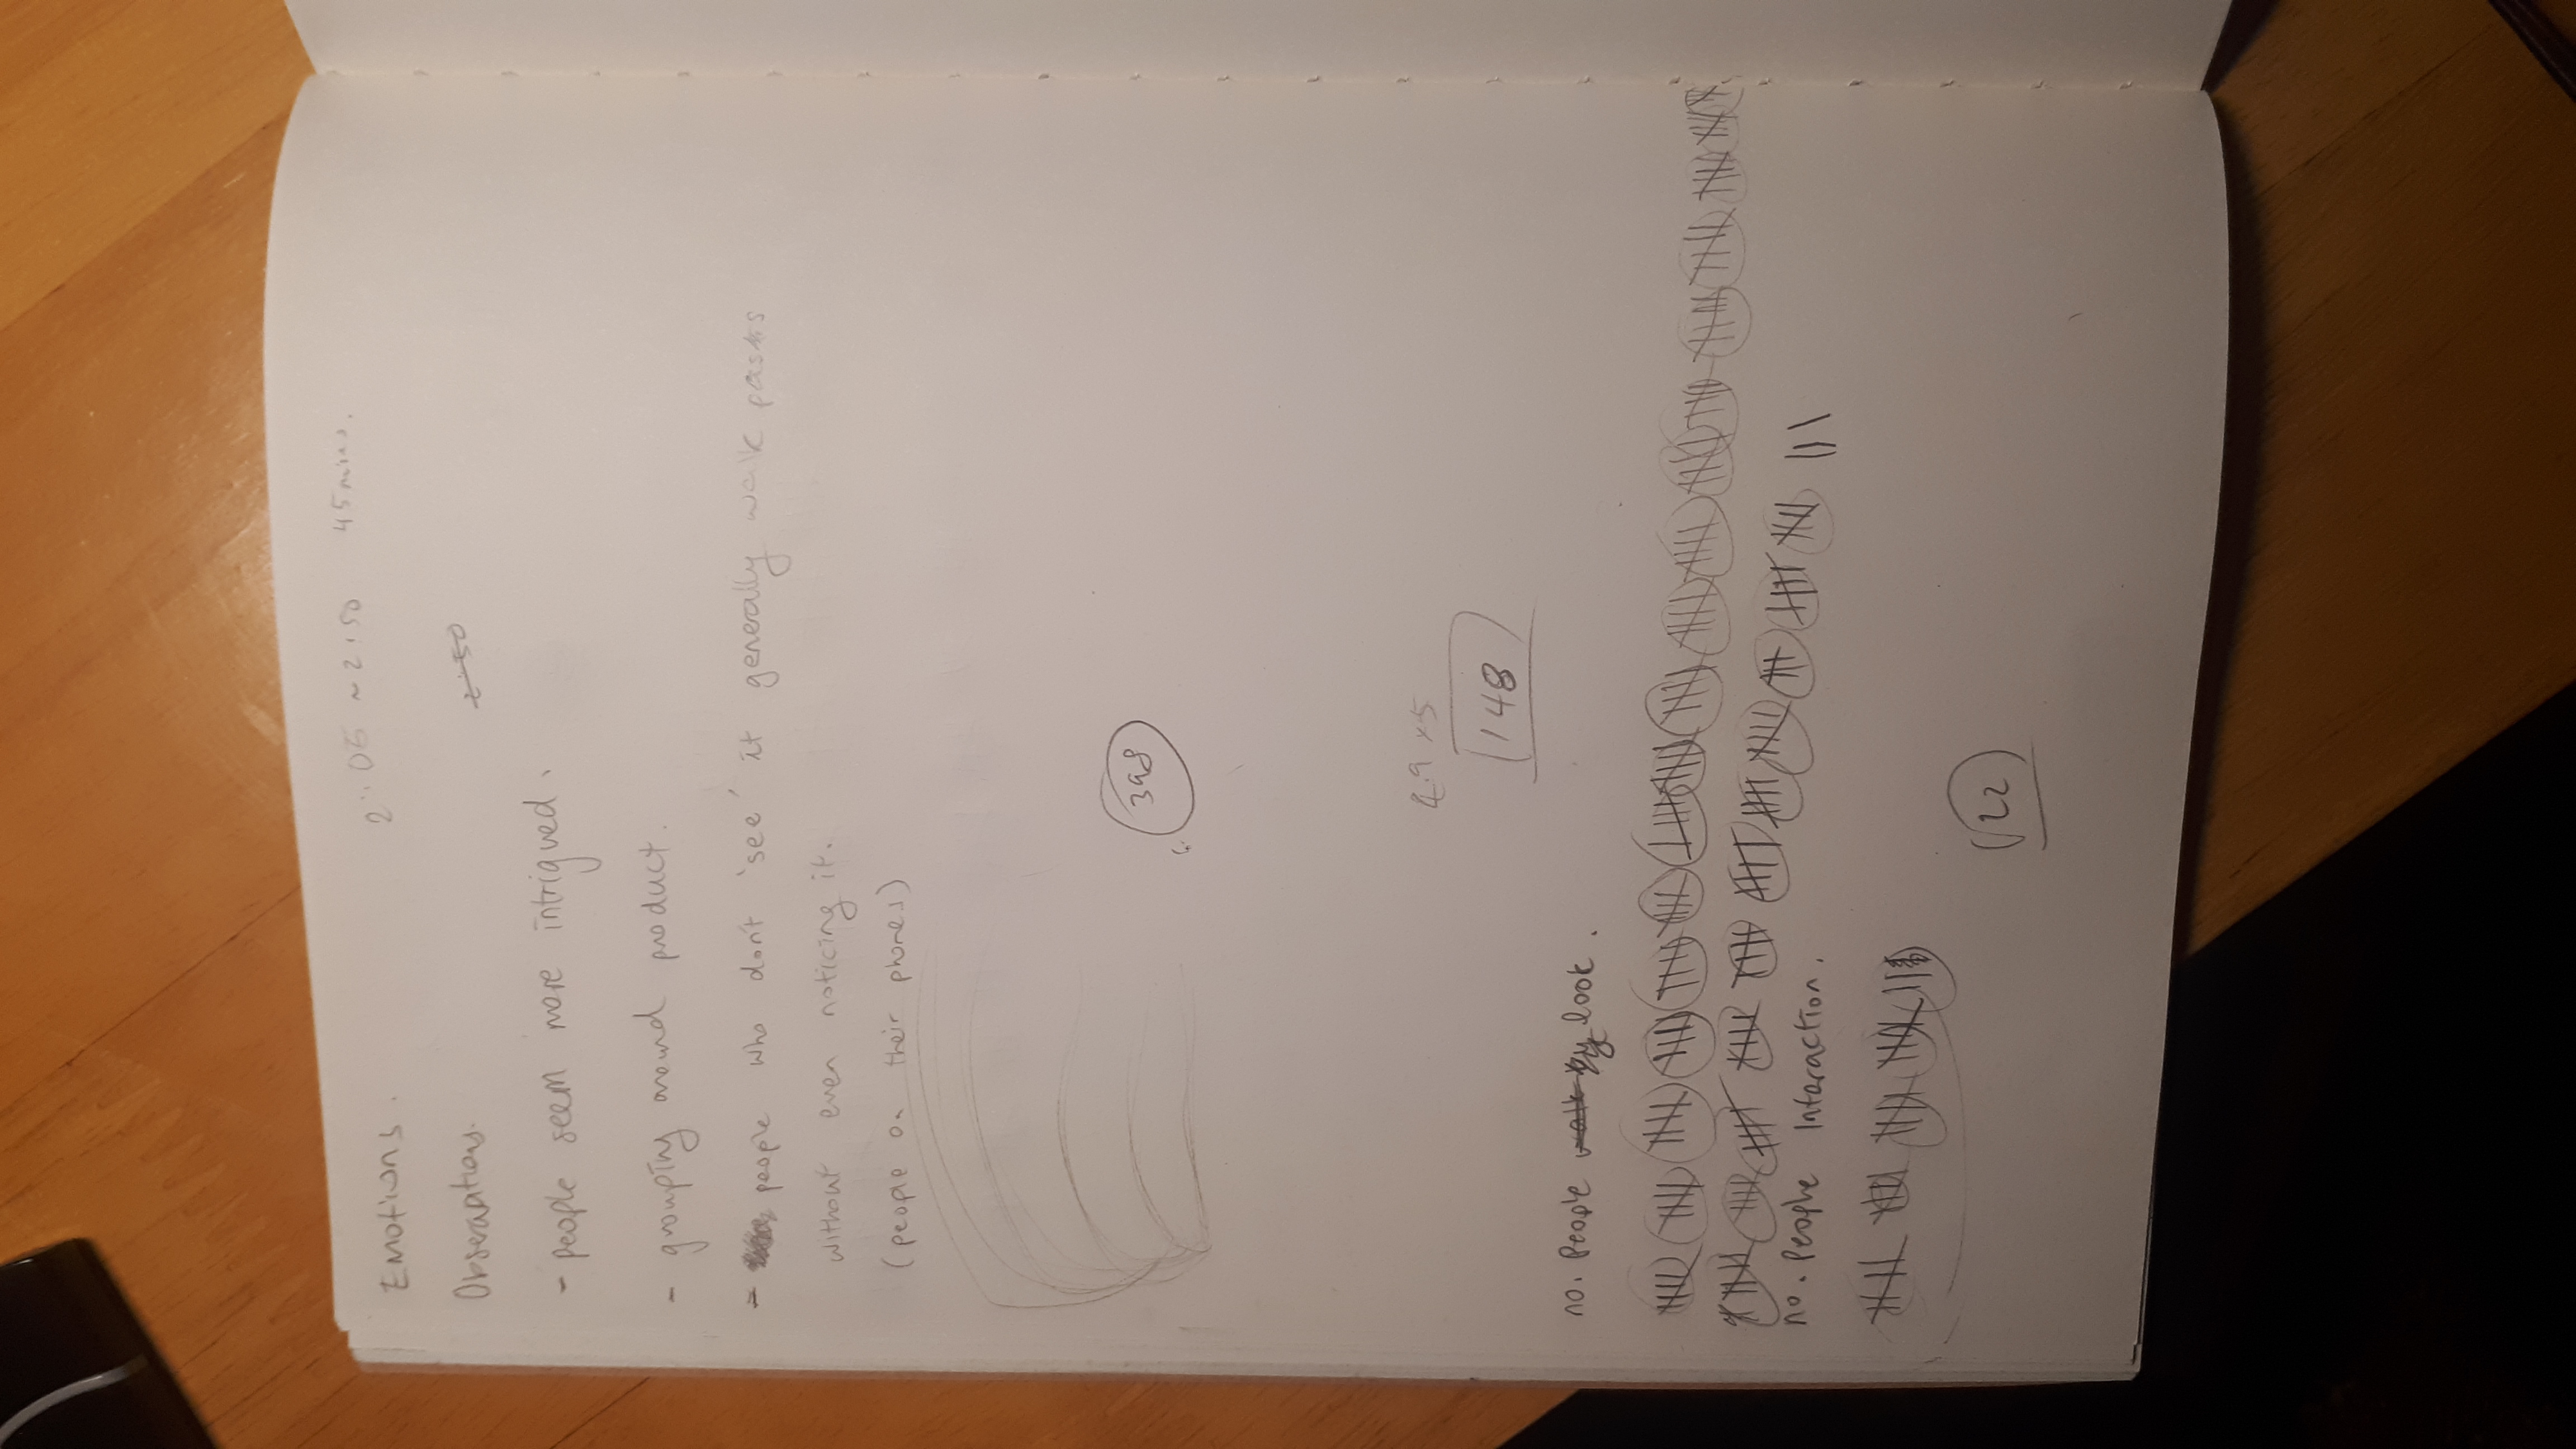 Emotions.
2:05 ~ 2:50 45 mins.
Observations.
2:50
- people seem more intrigued.
- grouping around product.
- people who don't 'see' it generally walk pass
without even noticing it.
(people on their phones)
398
29 x 5
148
no. People walk by look.
no. People Interaction.
22